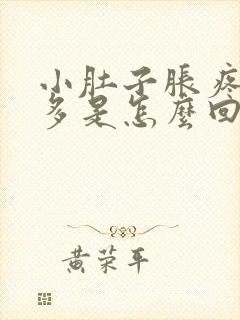 小肚子脹疼
多是怎麼回
黄荣平